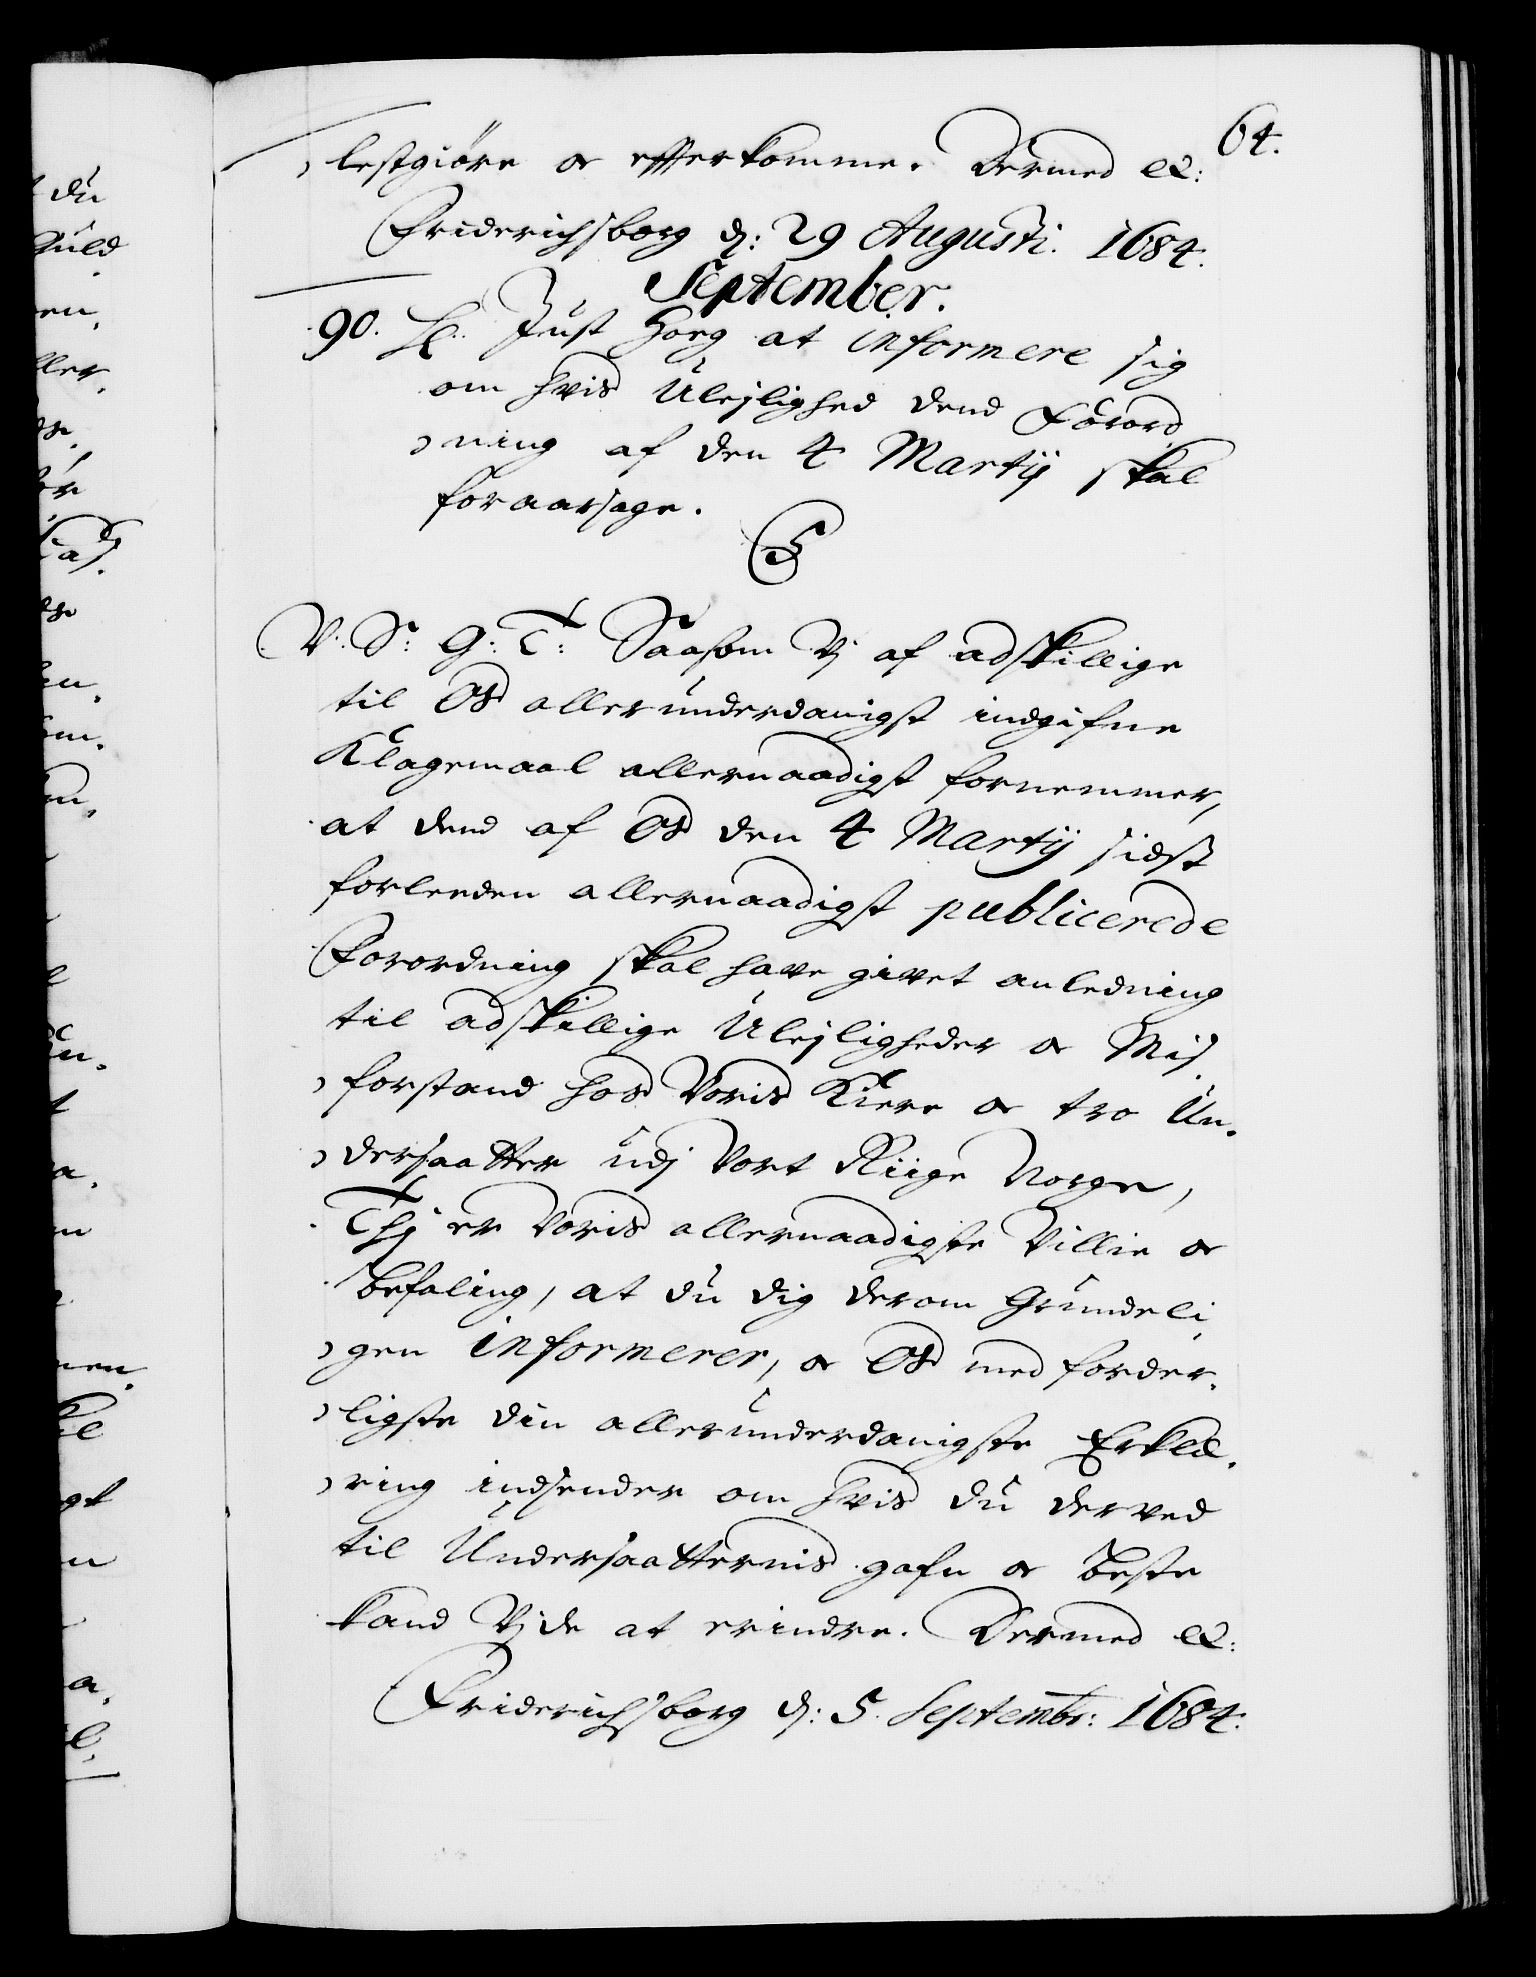 64.
lestgiöre og efterkomme. Dermed etc:
Friderichsborg d: 29 Augusti. 1684.
September.
90. Hr: Just Høeg at informere sig
om hvis Ulejlighed dend Forord
ning af den 4 Martij skal
foraarsage.
C5
V: S: G: T: Saasom Vj af adskillige
til Os allerunderdanigst indgifne
Klagemaal allernaadigst fornemmer,
at dend af Os den 4 Martij sidst
forleeden allernaadigst publicerede
Forordning skal have givet anledning
til adskillige Ulejligheder og Mis
forstand hos Voris Kiere og tro Un
dersaatter udj Vort Riige Norge,
Thj er Voris allernaadigste Villie og
befaling, at du dig derom Grundeli
gen informerer, og Os med forder
ligste din allerunderdanigste Erklæ
ring indsender om hvis du derved
til Undersaatternis gafn og beste
kand Vjde at erindre. Dermed etc:
Friderichsborg d: 5. Septembr: 1684.